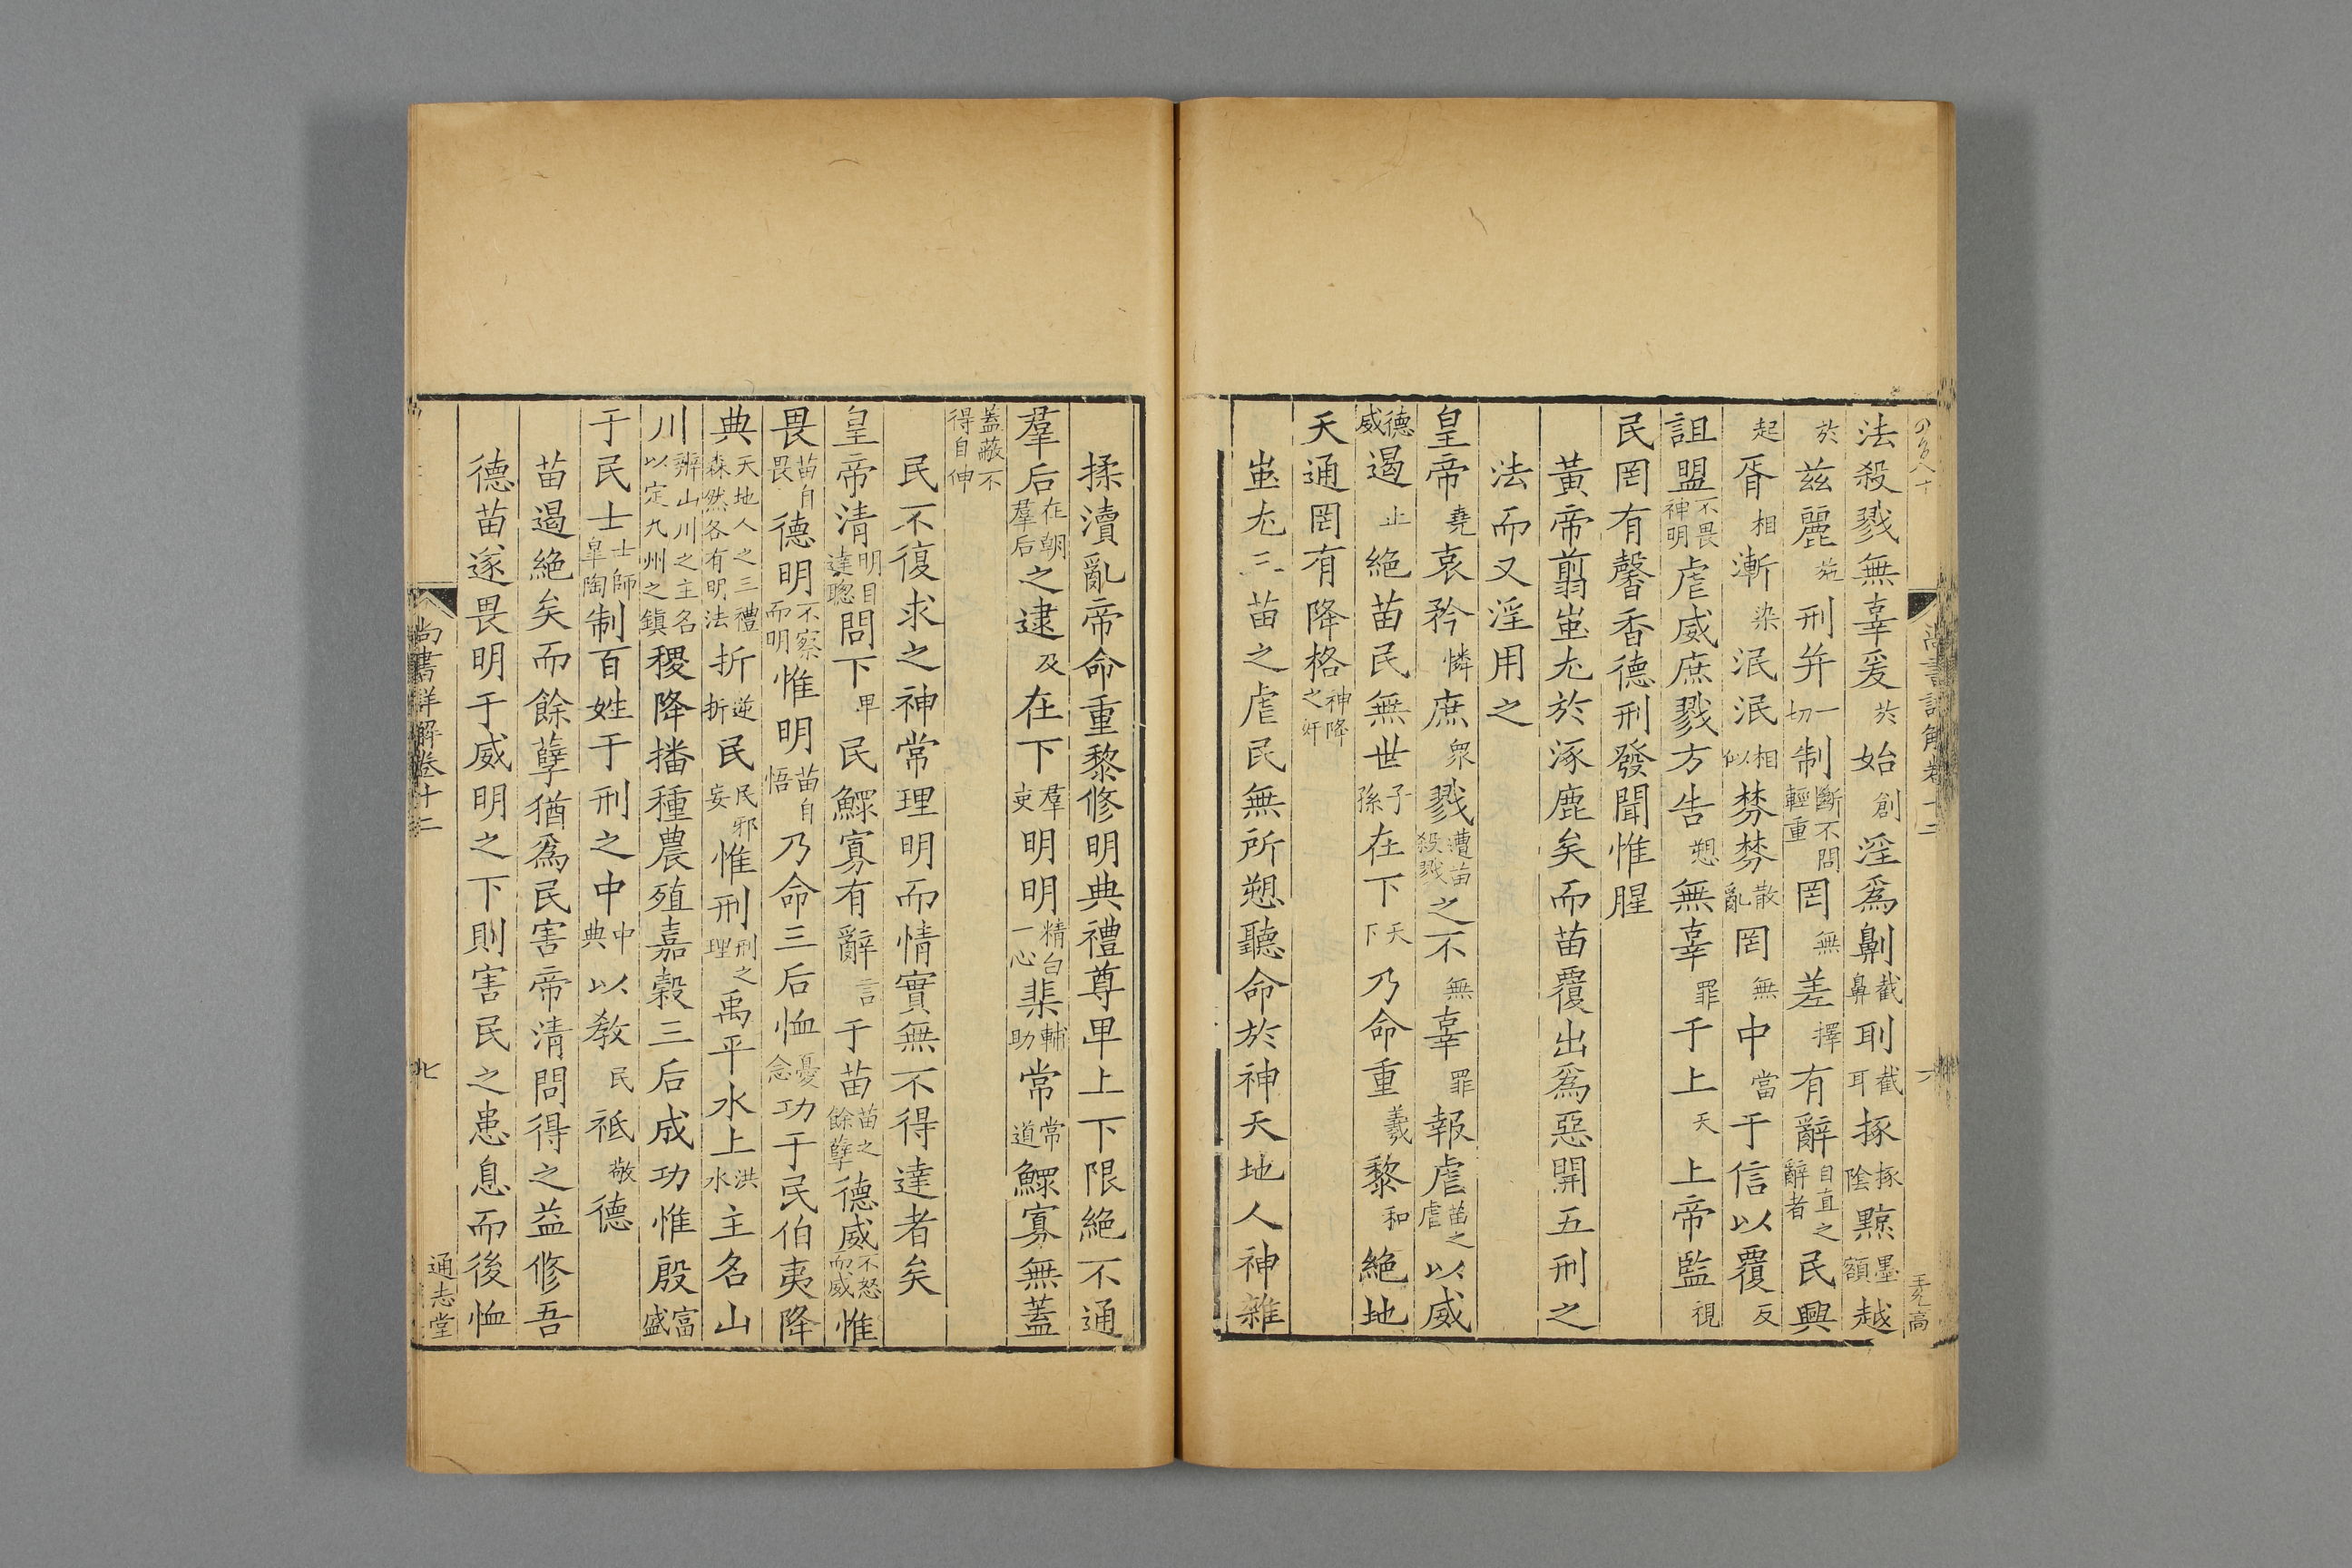 尚書詳解卷十二
法殺戮無辜爰於始創淫爲劓截鼻刵截耳椓椓陰黥墨額越
於茲麗苑刑并一切制斷不問輕重罔無差擇有辭自直之辭者民興
起胥相漸染泯泯相似棼棼散亂罔無中當于信以覆反
詛盟不畏神明虐威庶戮方告愬無辜罪于上天上帝監視
民罔有馨香德刑發聞惟腥
黃帝翦蚩尤於涿鹿矣而苗覆出爲惡開五刑之
法而又淫用之
皇帝堯哀矜憐庶衆戮遭苗殺戮之不無辜罪報虐苗之虐以威
德威遏止絶苗民無世子孫在下天下乃命重羲黎和絶地
天通罔有降格神降之奸
蚩尤三苗之虐民無所愬聽命於神天地人神雜
揉瀆亂帝命重黎修明典禮尊卑上下限絶不通
羣后在朝羣后之逮及在下羣吏明明精白一心棐輔助常常道鰥寡無蓋
蓋蔽不得自伸
民不復求之神常理明而情實無不得達者矣
皇帝清明目達聰問下卑民鰥寡有辭言于苗苗之餘孽德威不怒而威惟
畏苗自畏德明不察而明惟明苗自悟乃命三后恤憂念功于民伯夷降
典天地人之三禮森然各有明法折逆折民民邪妄惟刑刑之理禹平水上洪水主名山
川辨山川之主名以定九州之鎮稷降播種農殖嘉穀三后成功惟殷富盛
于民士士師皐陶制百姓于刑之中中典以敎民祗敬德
苗遏絶矣而餘孽猶爲民害帝清問得之益修吾
德苗遂畏明于威明之下則害民之患息而後恤
尚書詳解卷十二
七
通志堂